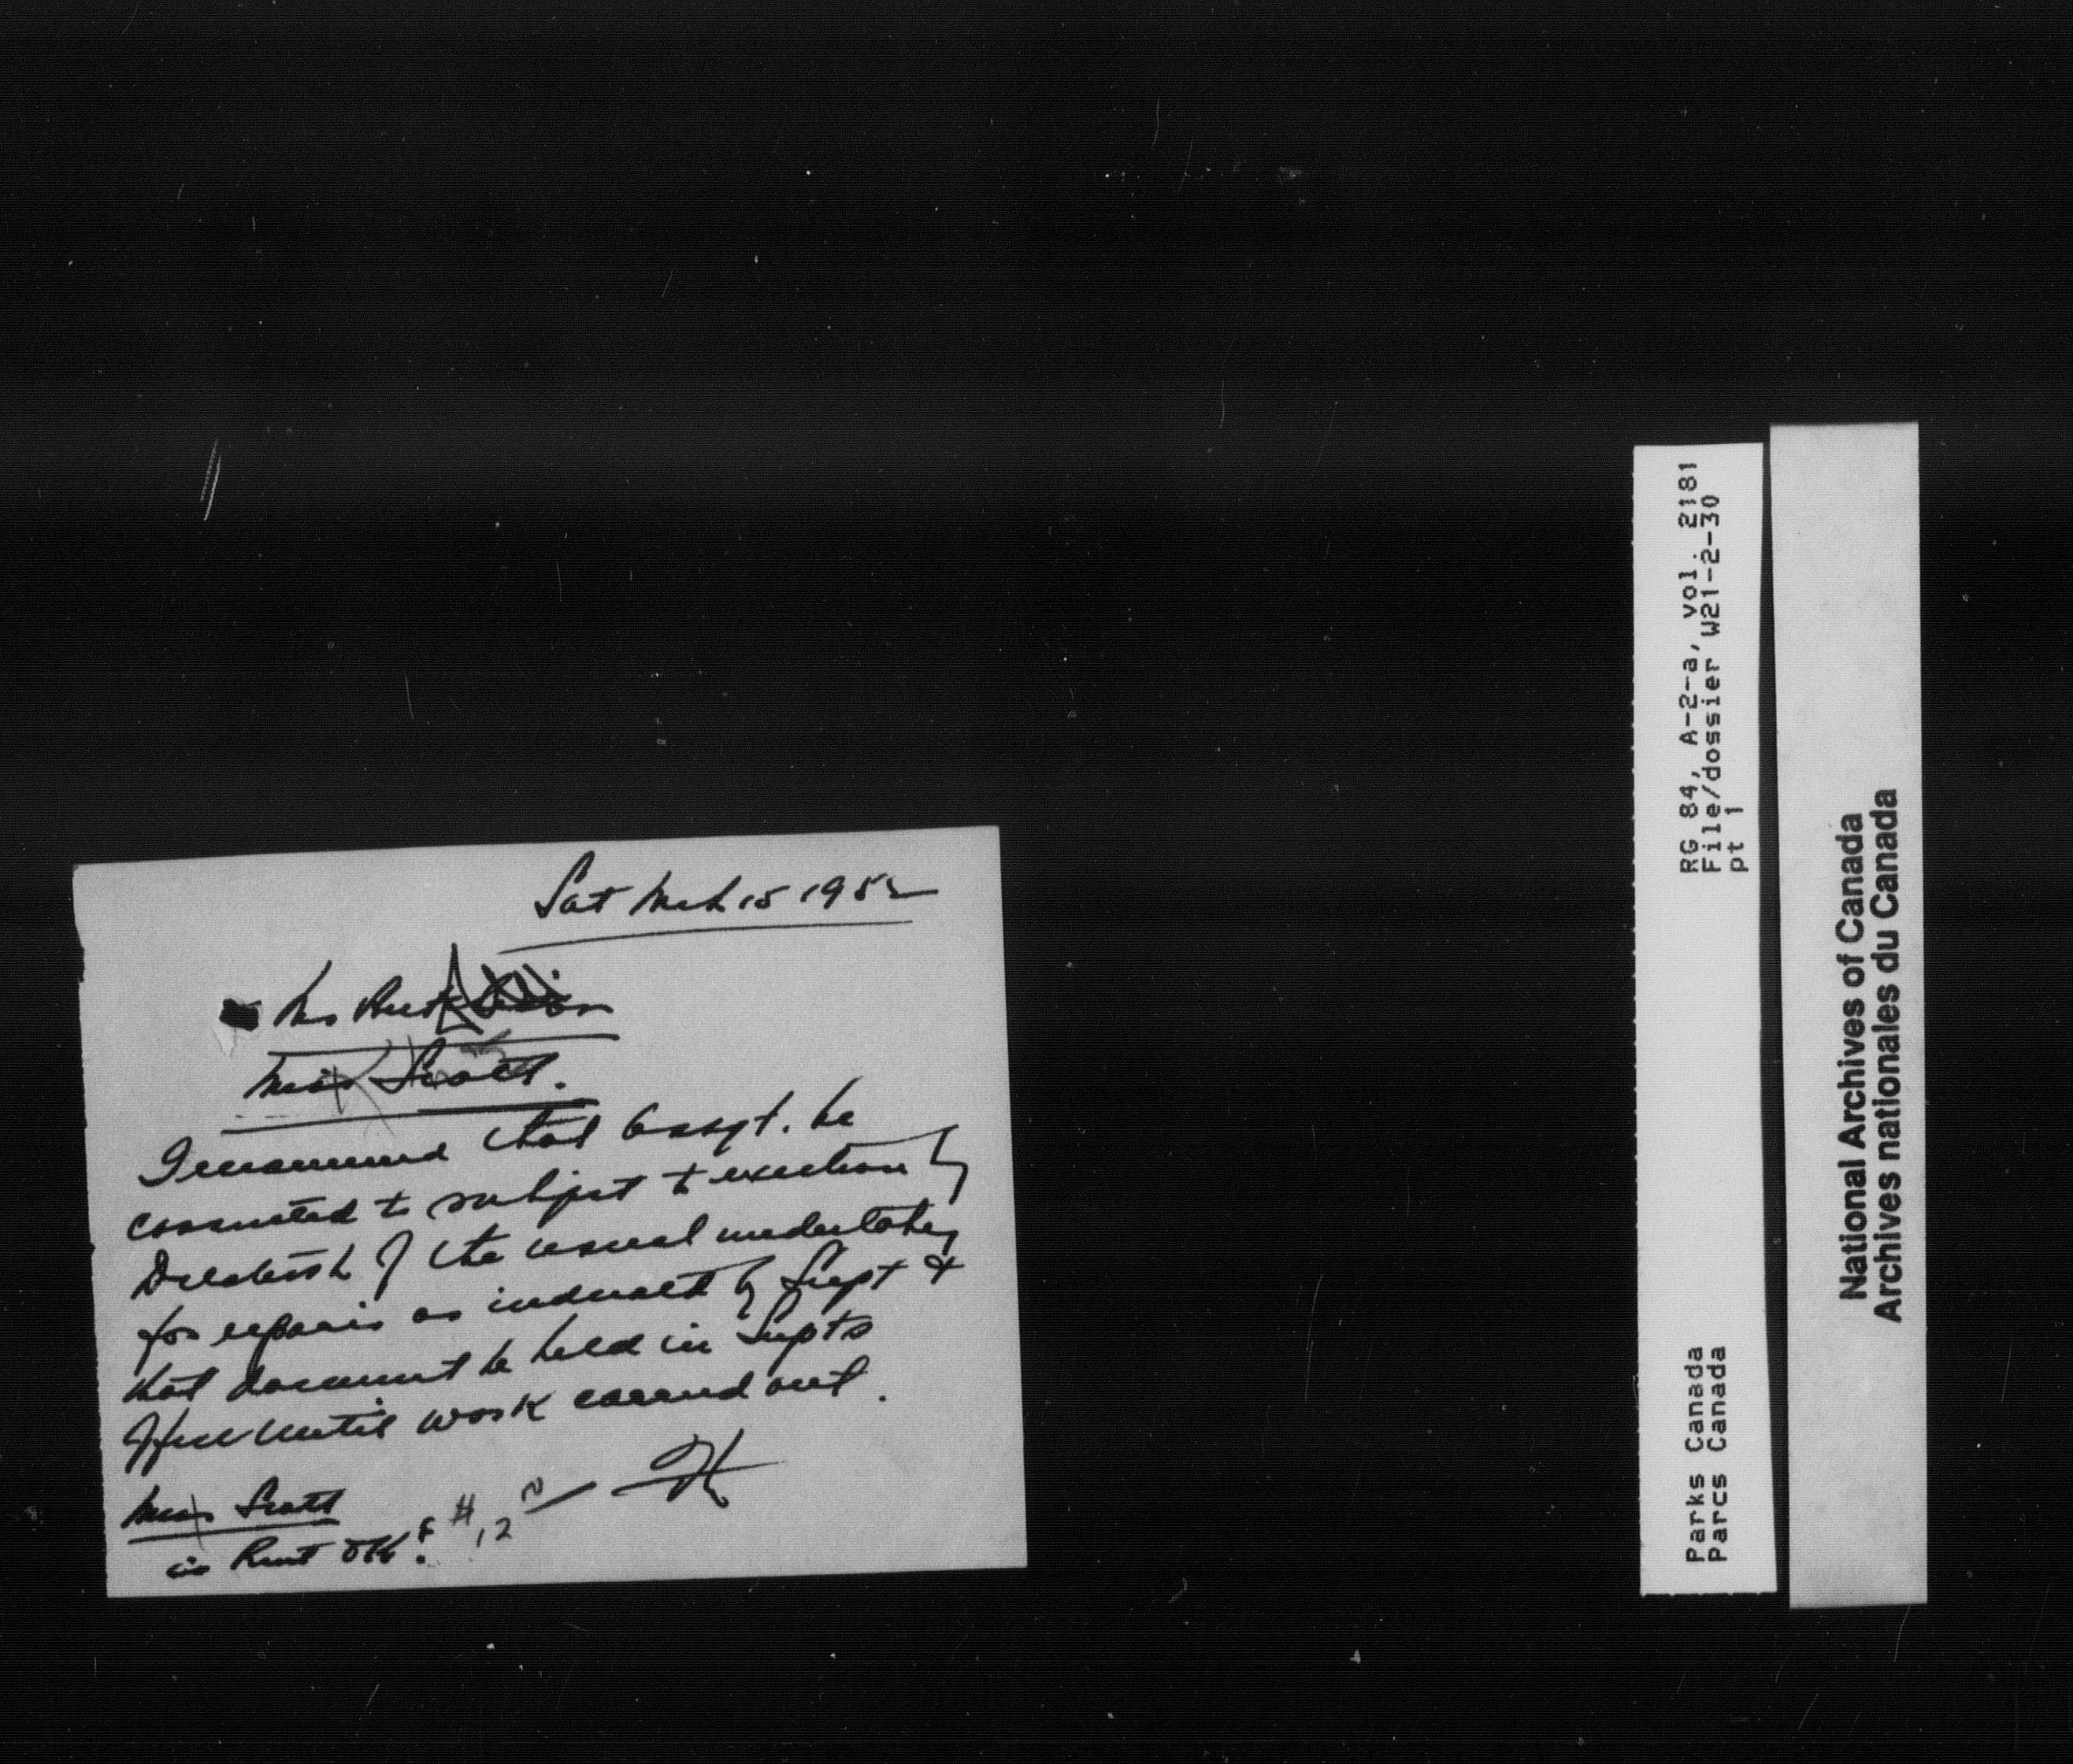 Sat Mch 15 1952
Miss Scott.
I recommend that assgt. be
consented to subject to execution by
of the usual undertaking
for repairs as indicated by Supt &
that document be held in Supts
Office until work carried out.
H
Miss Scott
is Rent OK? #12
RG 84, A-2-a, vol. 2181
File/dossier W21-2-30
pt 1
Parks Canada
Parcs Canada
National Archives of Canada
Archives nationales du Canada